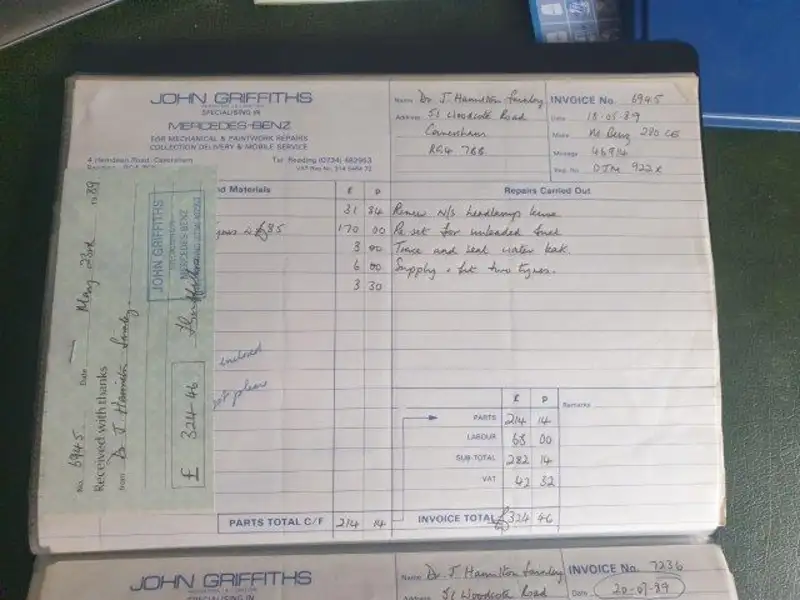 JOHN GRIFFITHS
SPECIALISING IN
MERCEDES-BENZ
FOR MECHANICAL & PAINTWORK REPAIRS
COLLECTION DELIVERY & MOBILE SERVICE
4 Hemdean Road, Caversham
Tel: Reading (0734) 482963
VAT Reg No.
Name Dr J. Hamilton
Address 51 Woodcote Road
Caversham
RG4 7BB
INVOICE No. 6945
Date 18-05-89
Make M. Benz 280 CE
Mileage 46914
Reg. No.
d Materials
£ p
Repairs Carried Out
31 84 Renew N/S headlamp
£85 170 00 Re set for unleaded fuel
3 00 Trace and seal water leak.
6 00 Supply + fit two tyres.
3 30
enclosed
please
£ p
Remarks
PARTS 214 14
LABOUR 68 00
SUB-TOTAL 282 14
VAT 42 32
PARTS TOTAL C/F 214 14
INVOICE TOTAL £324 46
No. 6945 Date May 23rd 1989
Received with thanks
from Dr J Hamilton
£ 324-46
JOHN GRIFFITHS
MERCEDES-BENZ
JOHN GRIFFITHS
SPECIALISING IN
Name Dr. J. Hamilton
Address 51 Woodcote Road
INVOICE No. 7236
Date 20-07-89